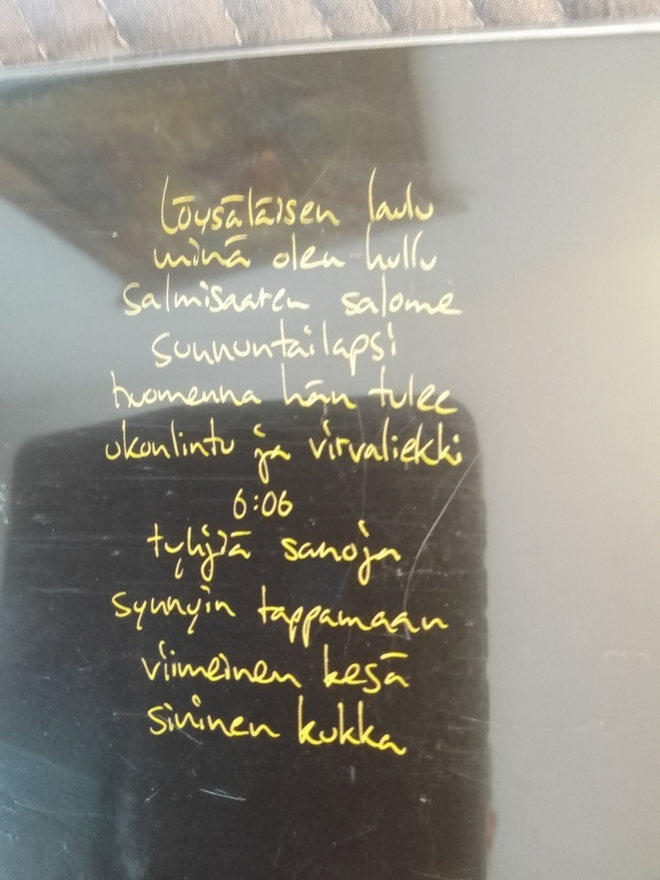 löysäläisen laulu
minä olen hullu
salmisaaren salome
sunnuntailapsi
huomenna hän tulee
ukonlintu ja virvaliekki
6:06
tyhjiä sanoja
synnyin tappamaan
viimeinen kesä
sininen kukka